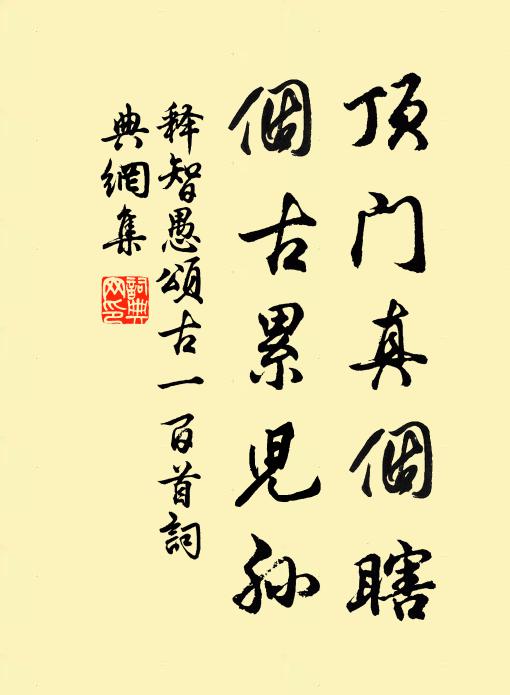 顶门真個瞎
個古累児孙
释智愚頌古一百首詞
典網集
詞典网印